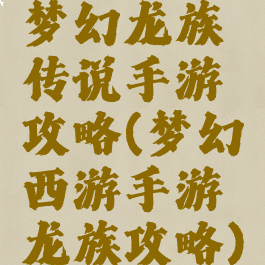 梦幻龙族
传说手游
攻略(梦幻
西游手游
龙族攻略)